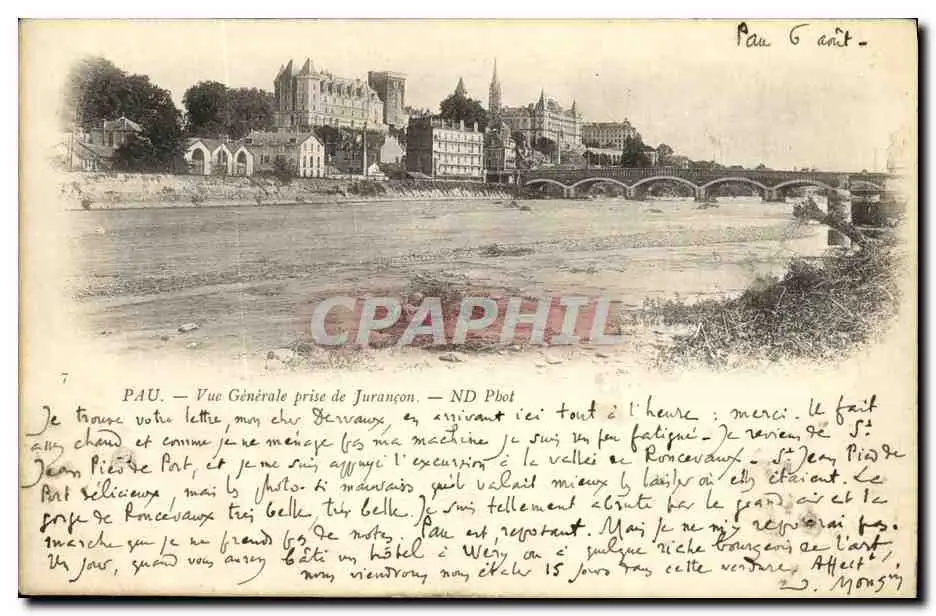 Pau 6 août -
CPAPHIL
7
PAU. — Vue Générale prise de Jurançon. — ND Phot
Je trouve votre lettre, mon cher Dervaux, en arrivant ici tout à l'heure : merci. Il fait
chaud et comme je ne ménage pas ma machine je suis un peu fatigué - Je reviens de St
Jean Pied de Port, et je me suis appuyé l'excursion à la vallée de Roncevaux - St Jean Pied de
Port délicieux, mais les photos si mauvais qu'il valait mieux les laisser où elles étaient. La
gorge de Roncevaux très belle, très belle. Je suis tellement abruti par le grand air et la
marche que je ne prends pas de notes. Pau est reposant. Mais je ne m'y reposerai pas.
Un jour, quand vous aurez bâti un hôtel à Wéry ou à quelque riche bourgeois de l'art,
nous viendrons nous étaler 15 jours dans cette verdure. Affectt